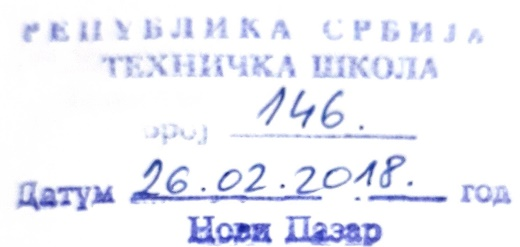 РЕПУБЛИКА СРБИЈА
ТЕХНИЧКА ШКОЛА
Број 146.
Датум 26.02.2018. год
Нови Пазар